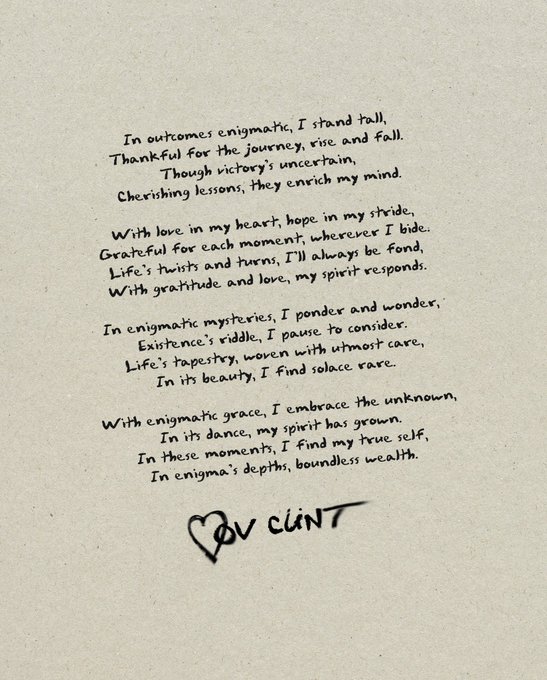 In outcomes enigmatic, I stand tall,
Thankful for the journey, rise and fall.
Though victory's uncertain,
Cherishing lessons, they enrich my mind.
With love in my heart, hope in my stride,
Grateful for each moment, wherever I bide.
Life's twists and turns, I'll always be fond,
With gratitude and love, my spirit responds.
In enigmatic mysteries, I ponder and wonder,
Existence's riddle, I pause to consider.
Life's tapestry, woven with utmost care,
In its beauty, I find solace rare.
With enigmatic grace, I embrace the unknown,
In its dance, my spirit has grown.
In these moments, I find my true self,
In enigma's depths, boundless wealth.
OV CLINT